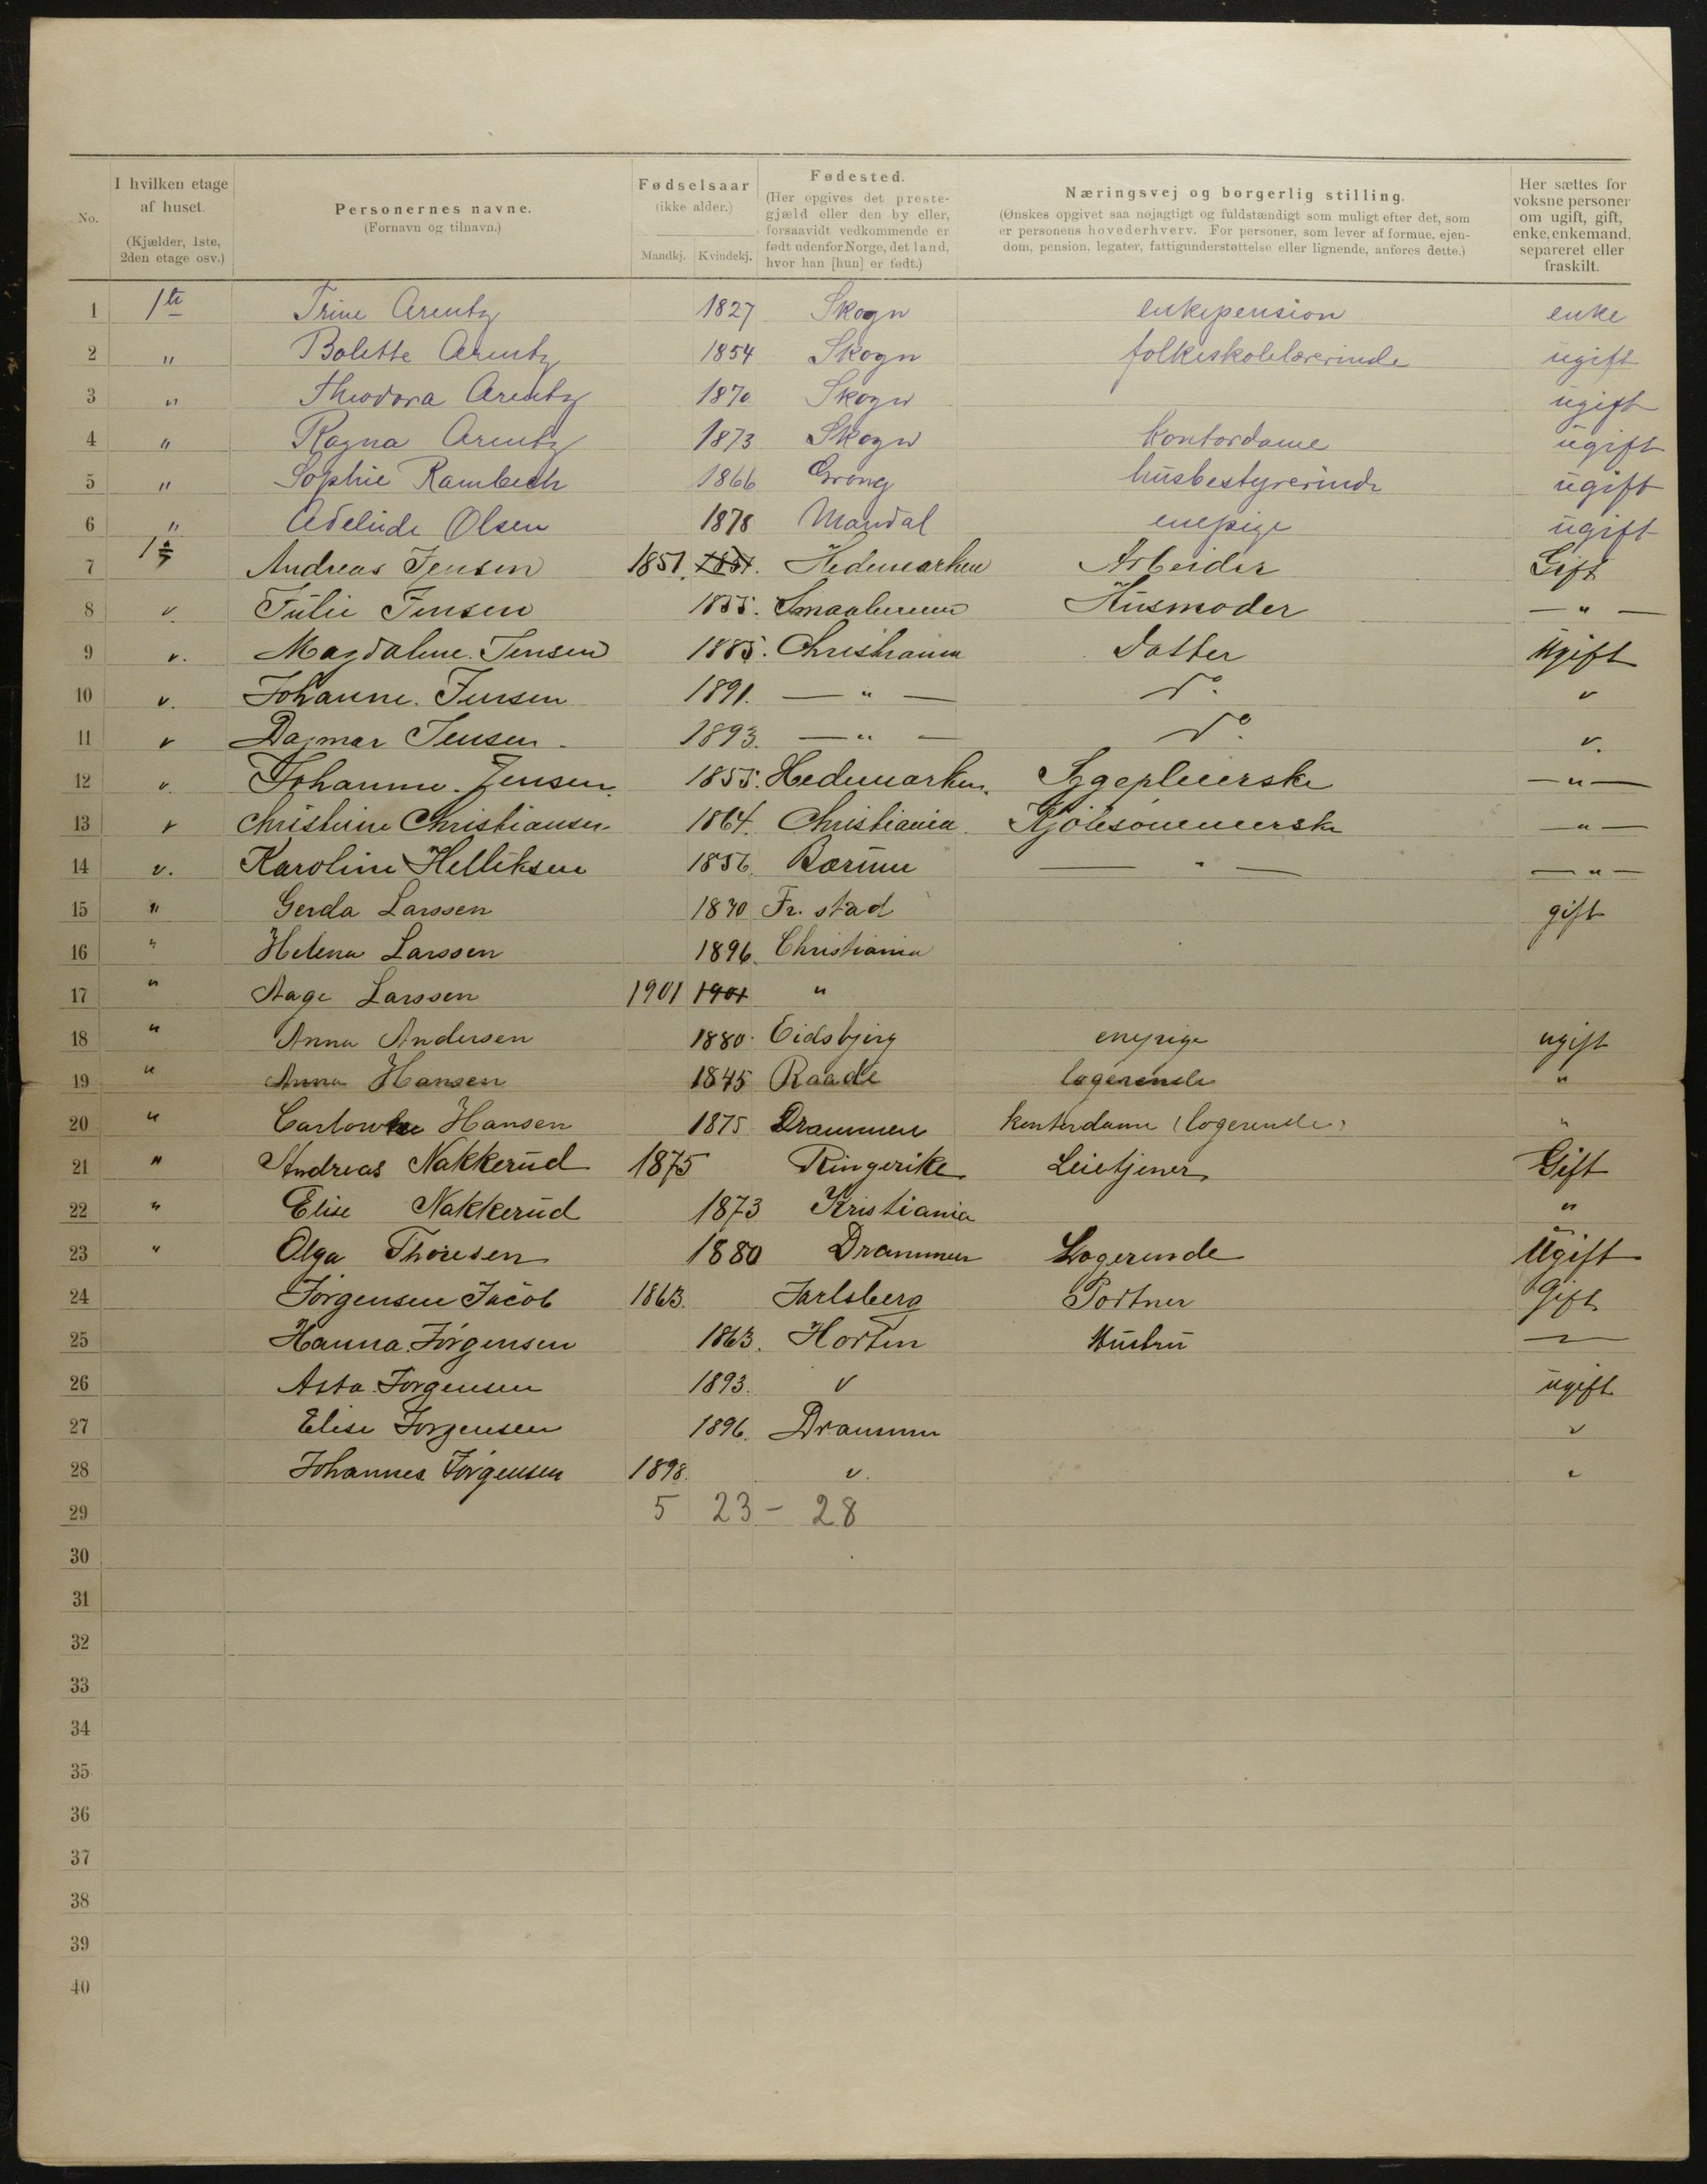 No. | I hvilken etage af huset. (Kjælder, 1ste, 2den etage osv.) | Personernes navne. (Fornavn og tilnavn.) | Fødselsaar (ikke alder.) Mandkj. Kvindekj. | Fødested. (Her opgives det prestegjæld eller den by eller, forsaavidt vedkommende er født udenfor Norge, det land, hvor han [hun] er født.) | Næringsvej og borgerlig stilling. (Ønskes opgivet saa nøjagtigt og fuldstændigt som muligt efter det, som er personens hovederhverv. For personer, som lever af formue, ejendom, pension, legater, fattigunderstøttelse eller lignende, anføres dette.) | Her sættes for voksne personer om ugift, gift, enke, enkemand, separeret eller fraskilt.
1 1te Trine Arentz 1827 Skogn enkepension enke
2 " Bolette Arentz 1854 Skogn folkeskolelærerinde ugift
3 " Theodora Arentz 1870 Skogn ugift
4 " Ragna Arentz 1873 Skogn Kontordame ugift
5 " Sophie Rambech 1866 Grong husbestyrerinde ugift
6 " Adelinde Olsen 1878 Mandal enepige ugift
7 1 Andreas Jensen 1851. 1851. Hedemarken Arbeider Gift
8 v. Julie Jensen 1855. Smaalenene Husmoder — " —
9 v. Magdalene. Jensen 1885. Christiania Datter Ugift
10 v. Johanne. Jensen 1891. — " — Do. v
11 v Dagmar Jensen. 1893. — " — Do. v.
12 v. Johanne. Jensen. 1855. Hedemarken. Sygepleierske — " —
13 v Christine Christiansen. 1864. Christiania. Kjolesømmerske — " —
14 v. Karoline Helliksen 1856. Bærum — " — — " —
15 " Gerda Larssen 1870 Fr. stad gift
16 " Helena Larssen 1896. Christiania
17 " Aage Larssen 1901 1901 "
18 " Anna Andersen 1880. Eidsbjerg enepige ugift
19 " Anna Hansen 1845 Raade logerende "
20 " Hansen 1875 Drammen kontordame (logerende) "
21 " Andreas Nakkerud 1875 Ringerike Leietjener Gift
22 " Elise Nakkerud 1873 Kristiania "
23 " Olga Thoresen 1880 Drammen Logerende Ugift
24 Jørgensen Jacob 1863. Jarlsberg Portner Gift
25 Hanna. Jørgensen 1863. Horten Hustru —"—
26 Asta. Jørgensen 1893. v ugift
27 Elise Jørgensen 1896. Drammen v
28 Johannes Jørgensen 1898. v. v
29 5 23 – 28
30
31
32
33
34
35
36
37
38
39
40